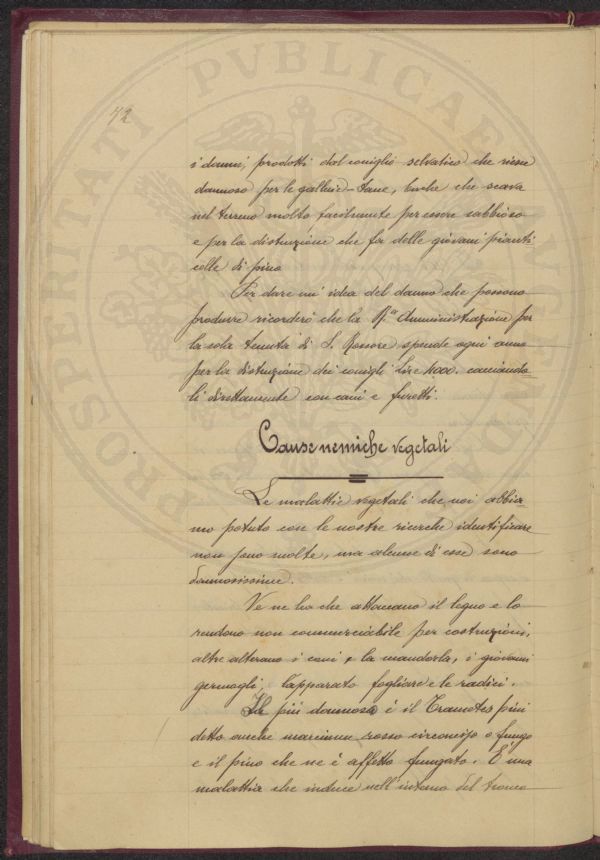 72
i danni, prodotti dal coniglio selvatico che riesce
dannoso per le gallerie-tane, buche che scava
nel terreno molto facilmente per essere sabbioso
e per la distruzione che fa delle giovani pianti
celle di pino
Per dare un' idea del danno che possono
produrre ricorderò che la Rª Amministrazione per
la sola tenuta di S. Rossore spende ogni anno
per la distruzione dei conigli Lire cacciando
li direttamente con cani e furetti.
Cause nemiche vegetali
Le malattie vegetali che noi abbia-
mo potuto con le nostre ricerche identificare
non sono molte, ma alcune di esse sono
dannosissime.
Ve ne ha che attaccano il legno e lo
rendono non commerciabile per costruzioni,
altre alterano i coni e la mandorla, i giovani
germogli, l'apparato fogliare e le radici.
Il più dannoso è il Trametes pini
detto anche marciume rosso circonciso o fungo
e il pino che ne è affetto fungato. È una
malattia che induce nell'interno del tronco
PROSPERITATI PVBLICAE AVGENDAE